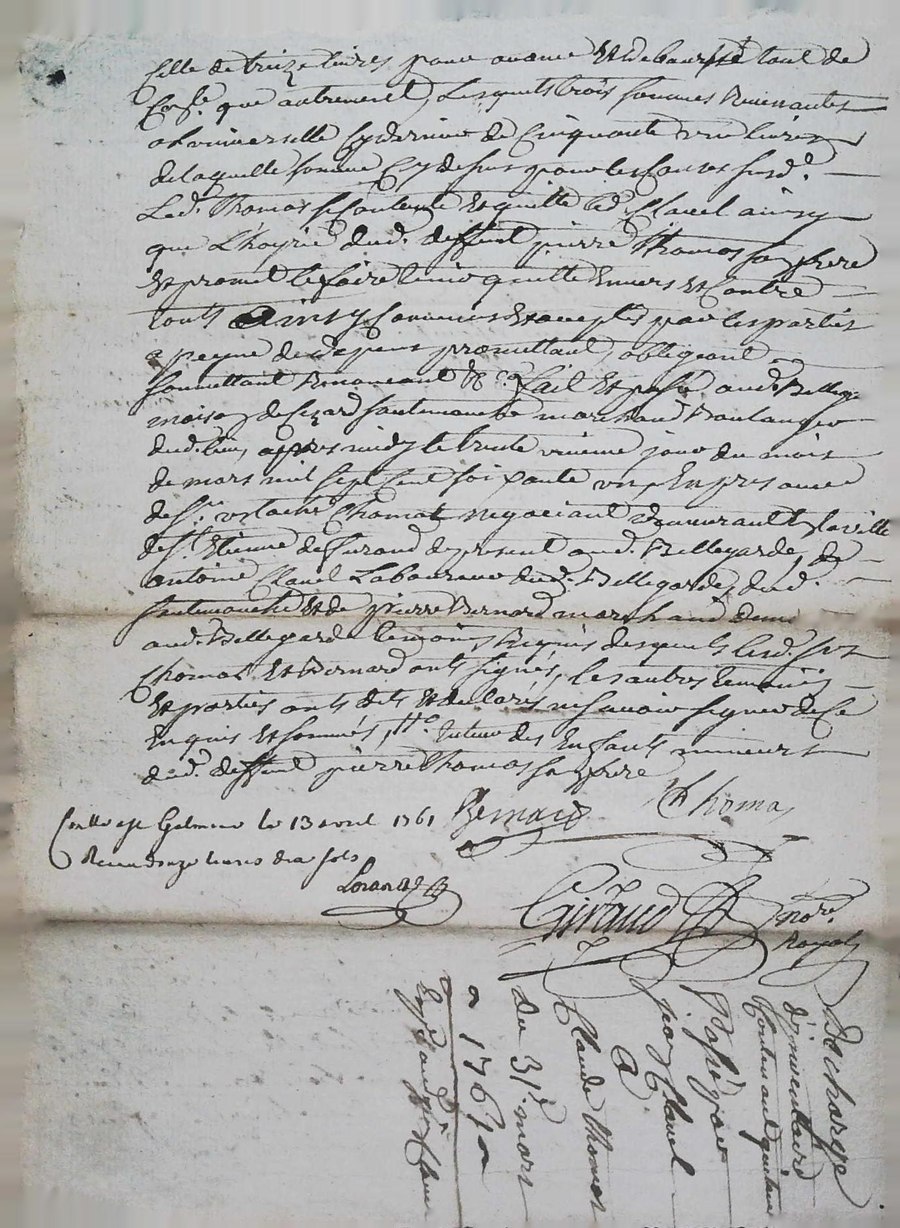 celle de treize livres pour avance et debourse tant de
que autrement, lesquels trois sommes revenantes
a luniverselle de cinquante une livres
de laquelle somme cy dessus pour les causes susd.
Led. Thomas se contente et quitte led. Clavel ainsy
que L'hoyrie dud. deffunt pierre thomas son frere
et promet le faire tenir quitte envers et contre
touts Ainsy convenu et accepté par les parties
a peyne de depens promettant, obligeant
soumettant Renonceant &c. fait et passé aud. Bellegde
maison de marchand Boulanger
dud. lieu apres midy le trente unieme jour du mois
de mars mil sept cent soixante un En presance
de Sr. Thomas negociant demeurant la ville
de St. Etienne de furand de present aud. Bellegarde, de
antoine Clavel Laboureur dud. Bellegarde, dud.
et de pierre Bernard marchand
aud. Bellegarde temoins Requis desquels lesd. Srs
Thomas et Bernard onts signés, les autres temoins
et parties onts dits et declarés ne scavoir signer de ce
Enquis et sommés, tuteur des Enfants mineurs
dud. deffunt pierre thomas son frere
Bernard Thomas
Conllé a St Galmier le 13 avril 1761
Receu livres dix sols
Giraud Nore.
Royal
Decharge
d'inventaire
Contenand quittance
passé par
A
jean Clavel
Claude thomas
du 31e. mars
1761